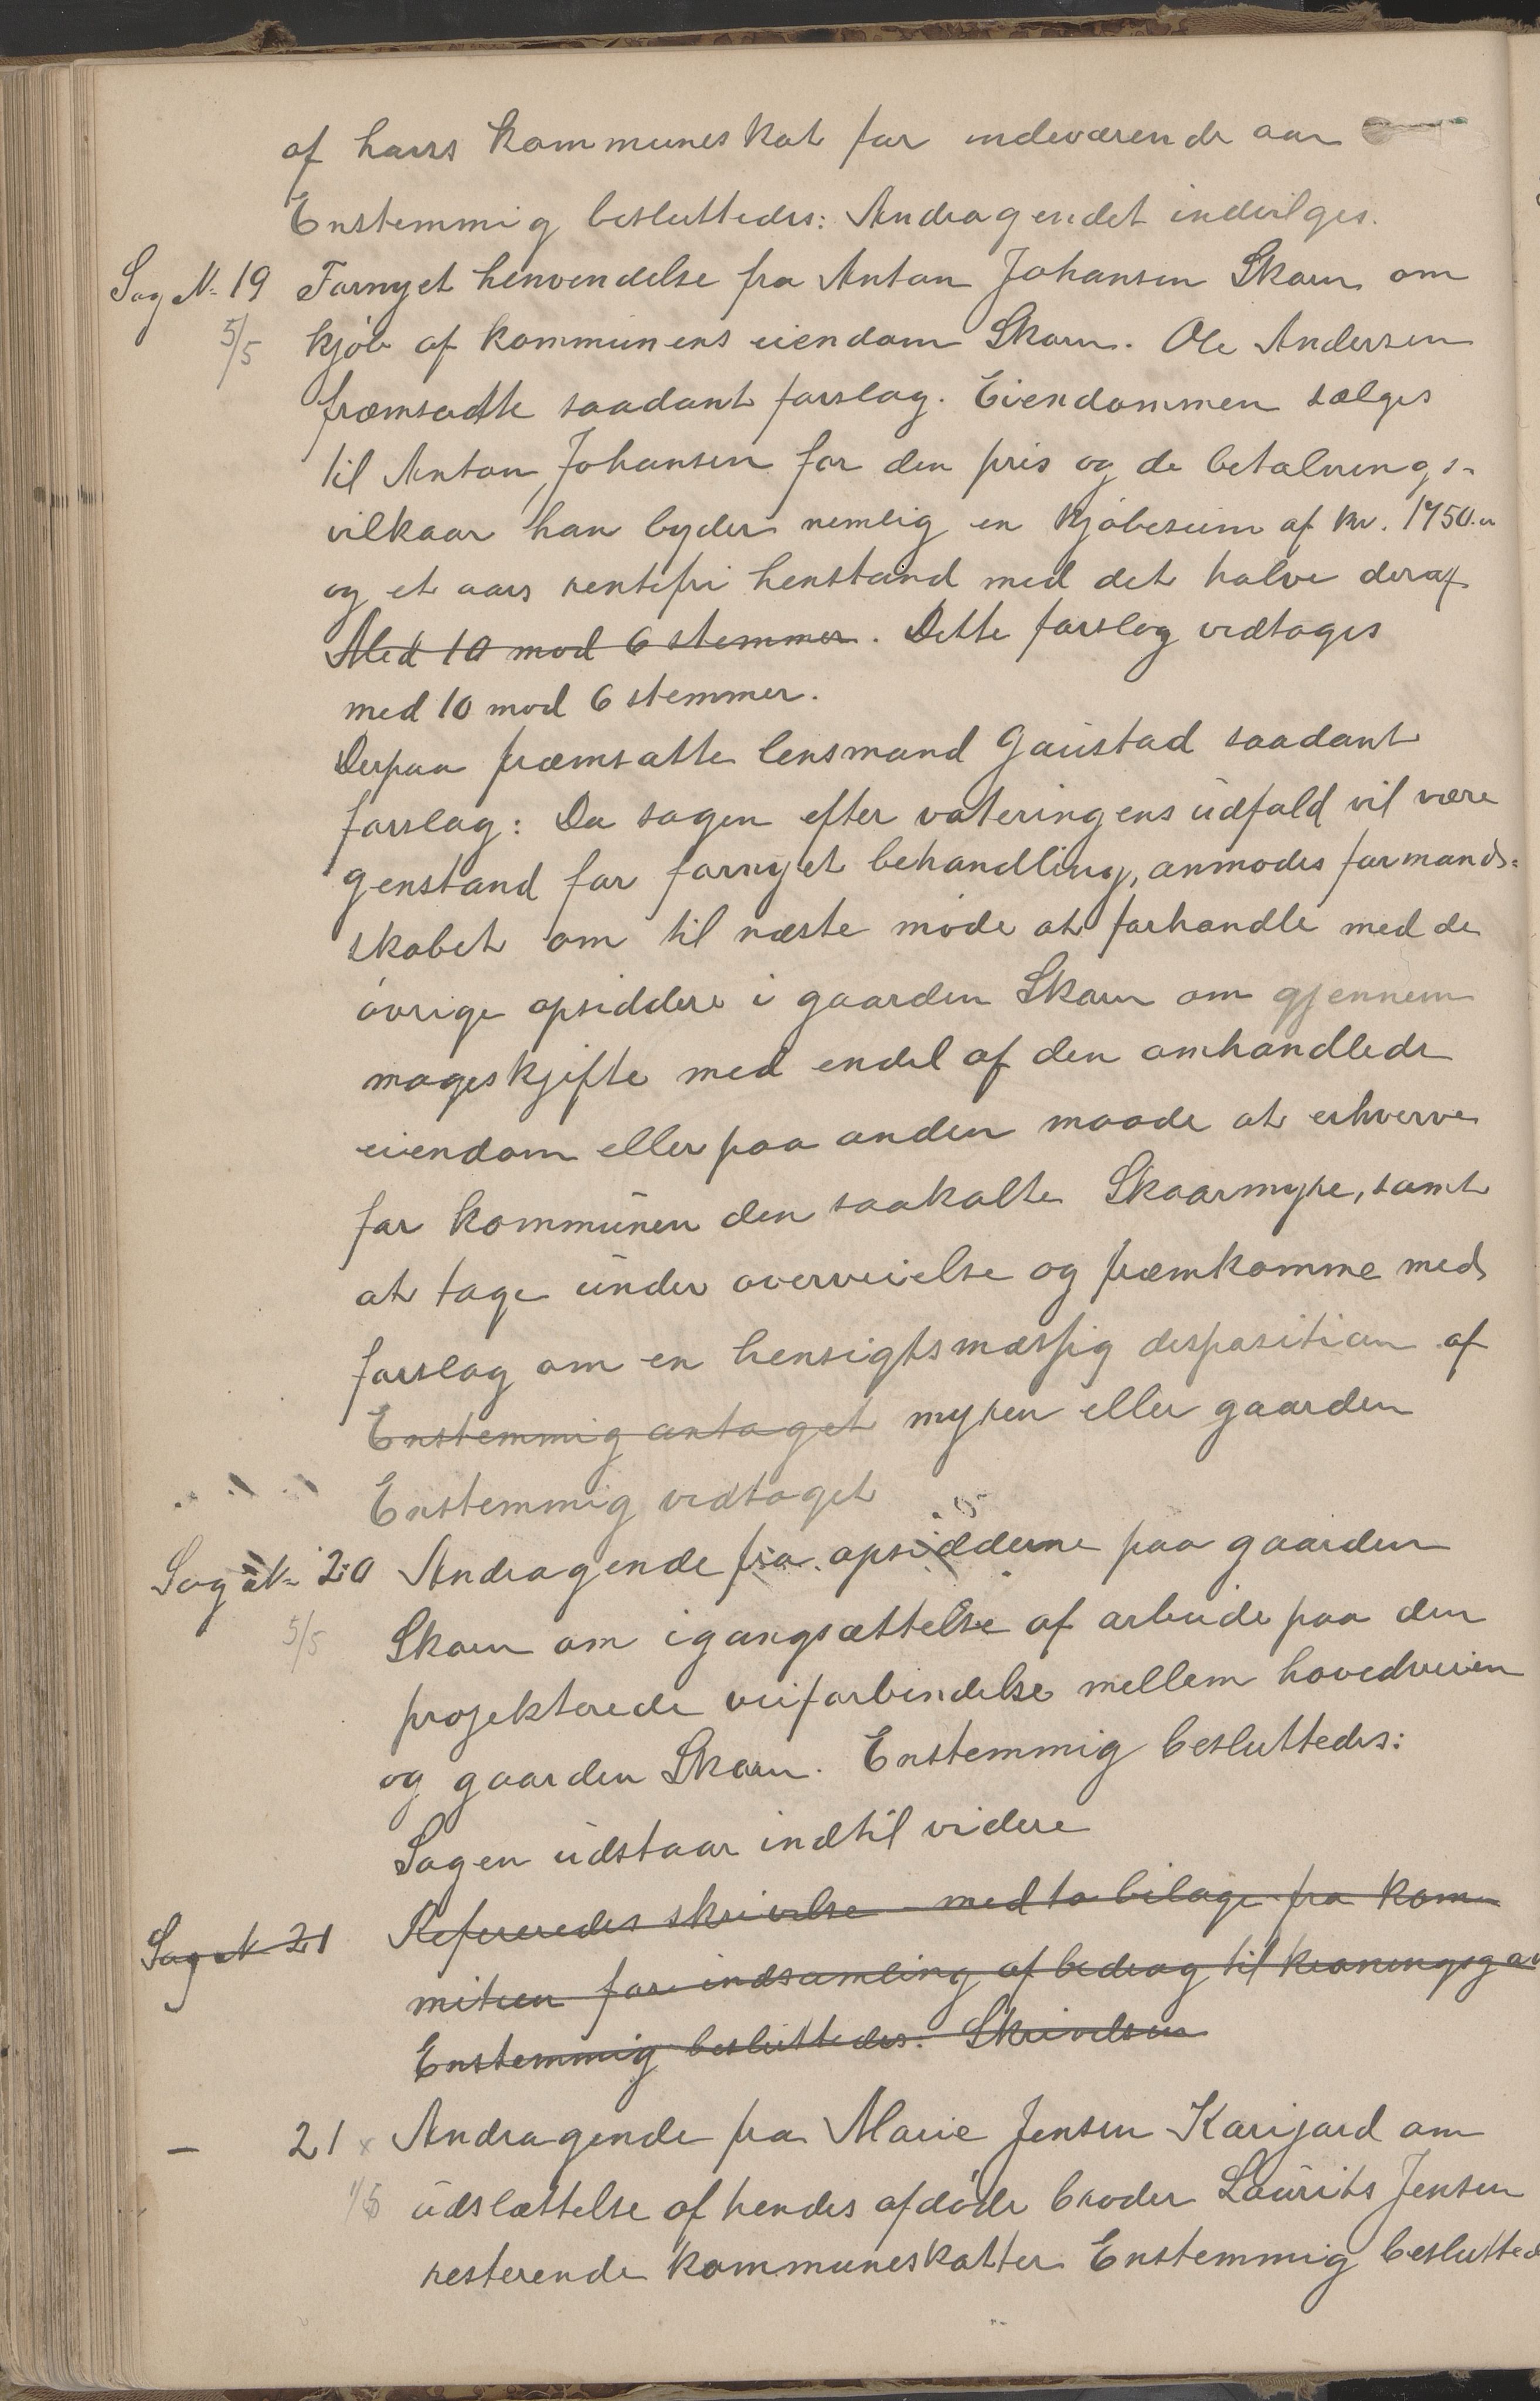 af hans kommuneskat for indeværende aar
Enstemmig besluttedes: Andragendet indvilges.
Sag № 19 Fornyet henvendelse fra Anton Johansen Skarn om
5/5 kjöb af kommunens eiendom Skarn. Ole Andersen
fræmsadte saadant forslag. Eiendommen sælges
til Anton Johansen for den pris og de betalnings-
vilkaar han byder nemlig en kjöbesum af kr. 1750.
og et aars rentefri henstand med det halve deraf
Med 10 mod 6 stemmer. Dette forslag vedtoges
med 10 mod 6 stemmer.
Derpaa fræmsatte lensmand Gaustad saadant
forslag: Da sagen efter voteringens udfald vil være
genstand for fornyet behandling, anmodes formand-
skabet om til næste möde at forhandle med de
övrige opsiddere i gaarden Skarn om gjennem
mageskjifte med endel af den omhandlede
eiendom eller paa anden maade at erhverve
for kommunen den saakalte Skaarmyre, samt
at tage under overveielse og fræmkomme med
forslag om en hensigtsmæssig desposition af
Enstemmig antaget myren eller gaarden
Enstemmig vedtaget
Sag № 20 Andragende fra opsidderne paa gaarden
5/5 Skarn om igangsættelse af arbeide paa den
projekterede veiforbindelse mellem hovedveien
og gaarden Skarn. Enstemmig besluttedes:
Sagen udstaar indtil videre
Sag № 21 Refereredes skrivelse med to bilage fra kom-
miteen for indsamling af bedrag til kroningsgav
Enstemmig besluttedes: Skrivelsen
— 21 x Andragende fra Marie Jensen Karijord om
1/5 udslættelse af hendes afdöde broder Laurits Jensen
resterende kommuneskatter Enstemmig beslutted